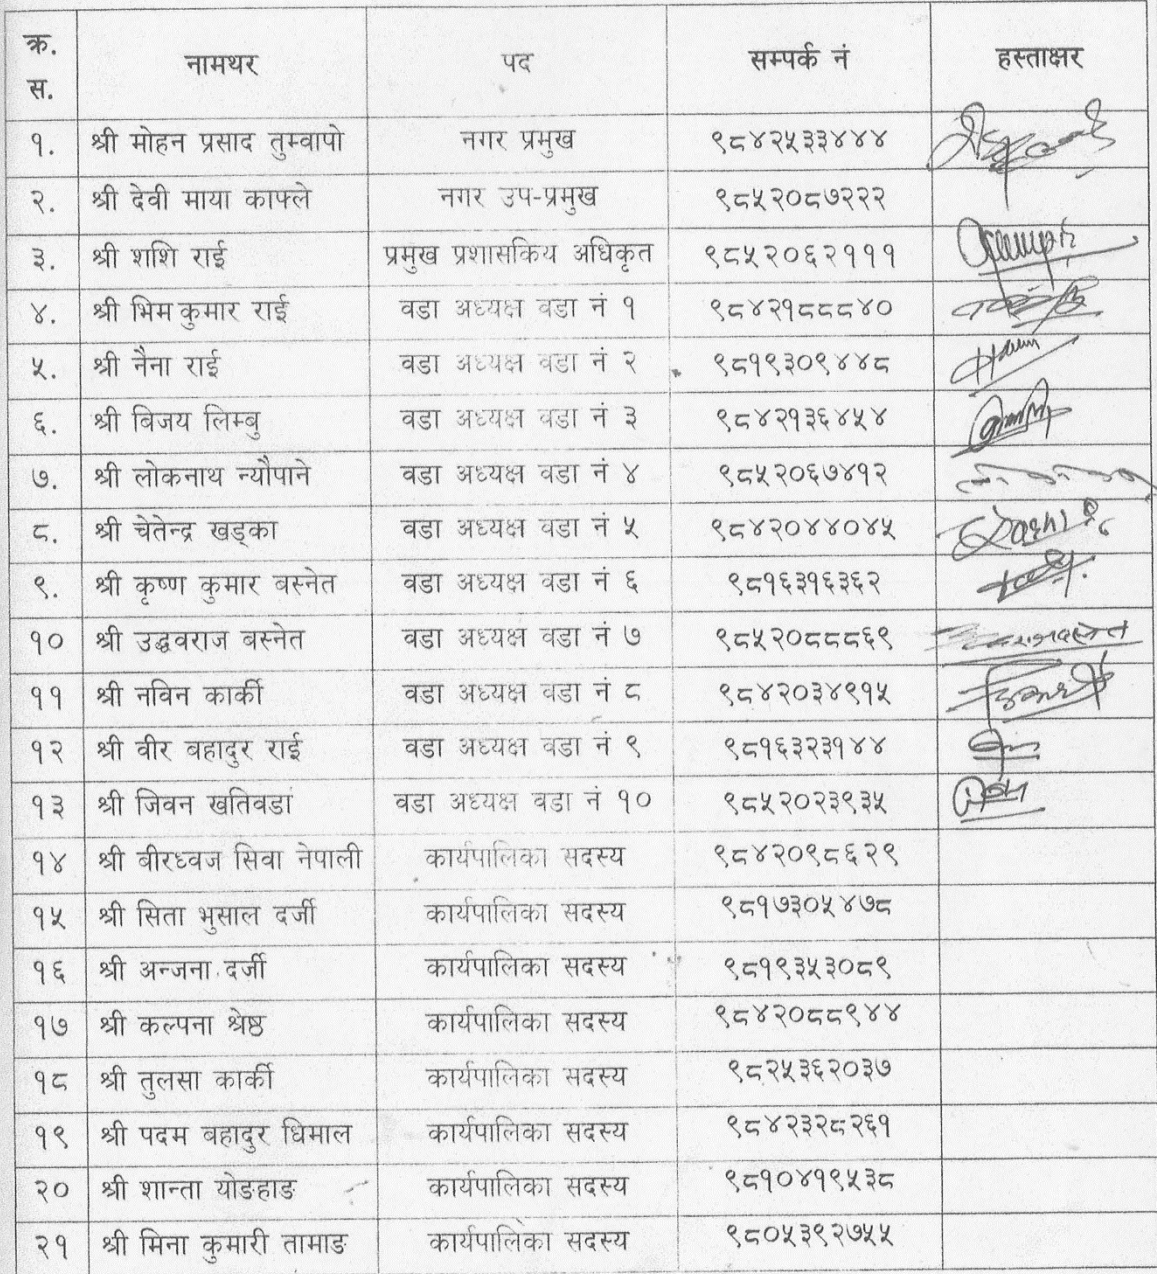 क्र.स. नामथर पद सम्पर्क नं हस्ताक्षर
१. श्री मोहन प्रसाद तुम्वापो नगर प्रमुख ९८४२५३३४४४
२. श्री देवी माया काफ्ले नगर उप-प्रमुख ९८५२०८७२२२
३. श्री शशि राई प्रमुख प्रशासकिय अधिकृत ९८५२०६२१११
४. श्री भिम कुमार राई वडा अध्यक्ष वडा नं १ ९८४२१८८८४०
५. श्री नैना राई वडा अध्यक्ष वडा नं २ ९८१९३०९४४८
६. श्री बिजय लिम्बु वडा अध्यक्ष वडा नं ३ ९८४२१३६४५४
७. श्री लोकनाथ न्यौपाने वडा अध्यक्ष वडा नं ४ ९८५२०६७४१२
८. श्री चेतेन्द्र खड्का वडा अध्यक्ष वडा नं ५ ९८४२०४४०४५
९. श्री कृष्ण कुमार बस्नेत वडा अध्यक्ष वडा नं ६ ९८१६३१६३६२
१० श्री उद्धवराज बस्नेत वडा अध्यक्ष वडा नं ७ ९८५२०८८८६९
११ श्री नविन कार्की वडा अध्यक्ष वडा नं ८ ९८४२०३४९१५
१२ श्री वीर बहादुर राई वडा अध्यक्ष वडा नं ९ ९८१६३२३१४४
१३ श्री जिवन खतिवडा वडा अध्यक्ष वडा नं १० ९८५२०२३९३५
१४ श्री बीरध्वज सिवा नेपाली कार्यपालिका सदस्य ९८४२०९८६२९
१५ श्री सिता भुसाल दर्जी कार्यपालिका सदस्य ९८१७३०५४७८
१६ श्री अन्जना दर्जी कार्यपालिका सदस्य ९८१९३५३०८९
१७ श्री कल्पना श्रेष्ठ कार्यपालिका सदस्य ९८४२०८८९४४
१८ श्री तुलसा कार्की कार्यपालिका सदस्य ९८२५३६२०३७
१९ श्री पदम बहादुर धिमाल कार्यपालिका सदस्य ९८४२३२८२६१
२० श्री शान्ता योङहाङ कार्यपालिका सदस्य ९८१०४१९५३८
२१ श्री मिना कुमारी तामाङ कार्यपालिका सदस्य ९८०५३९२७५५